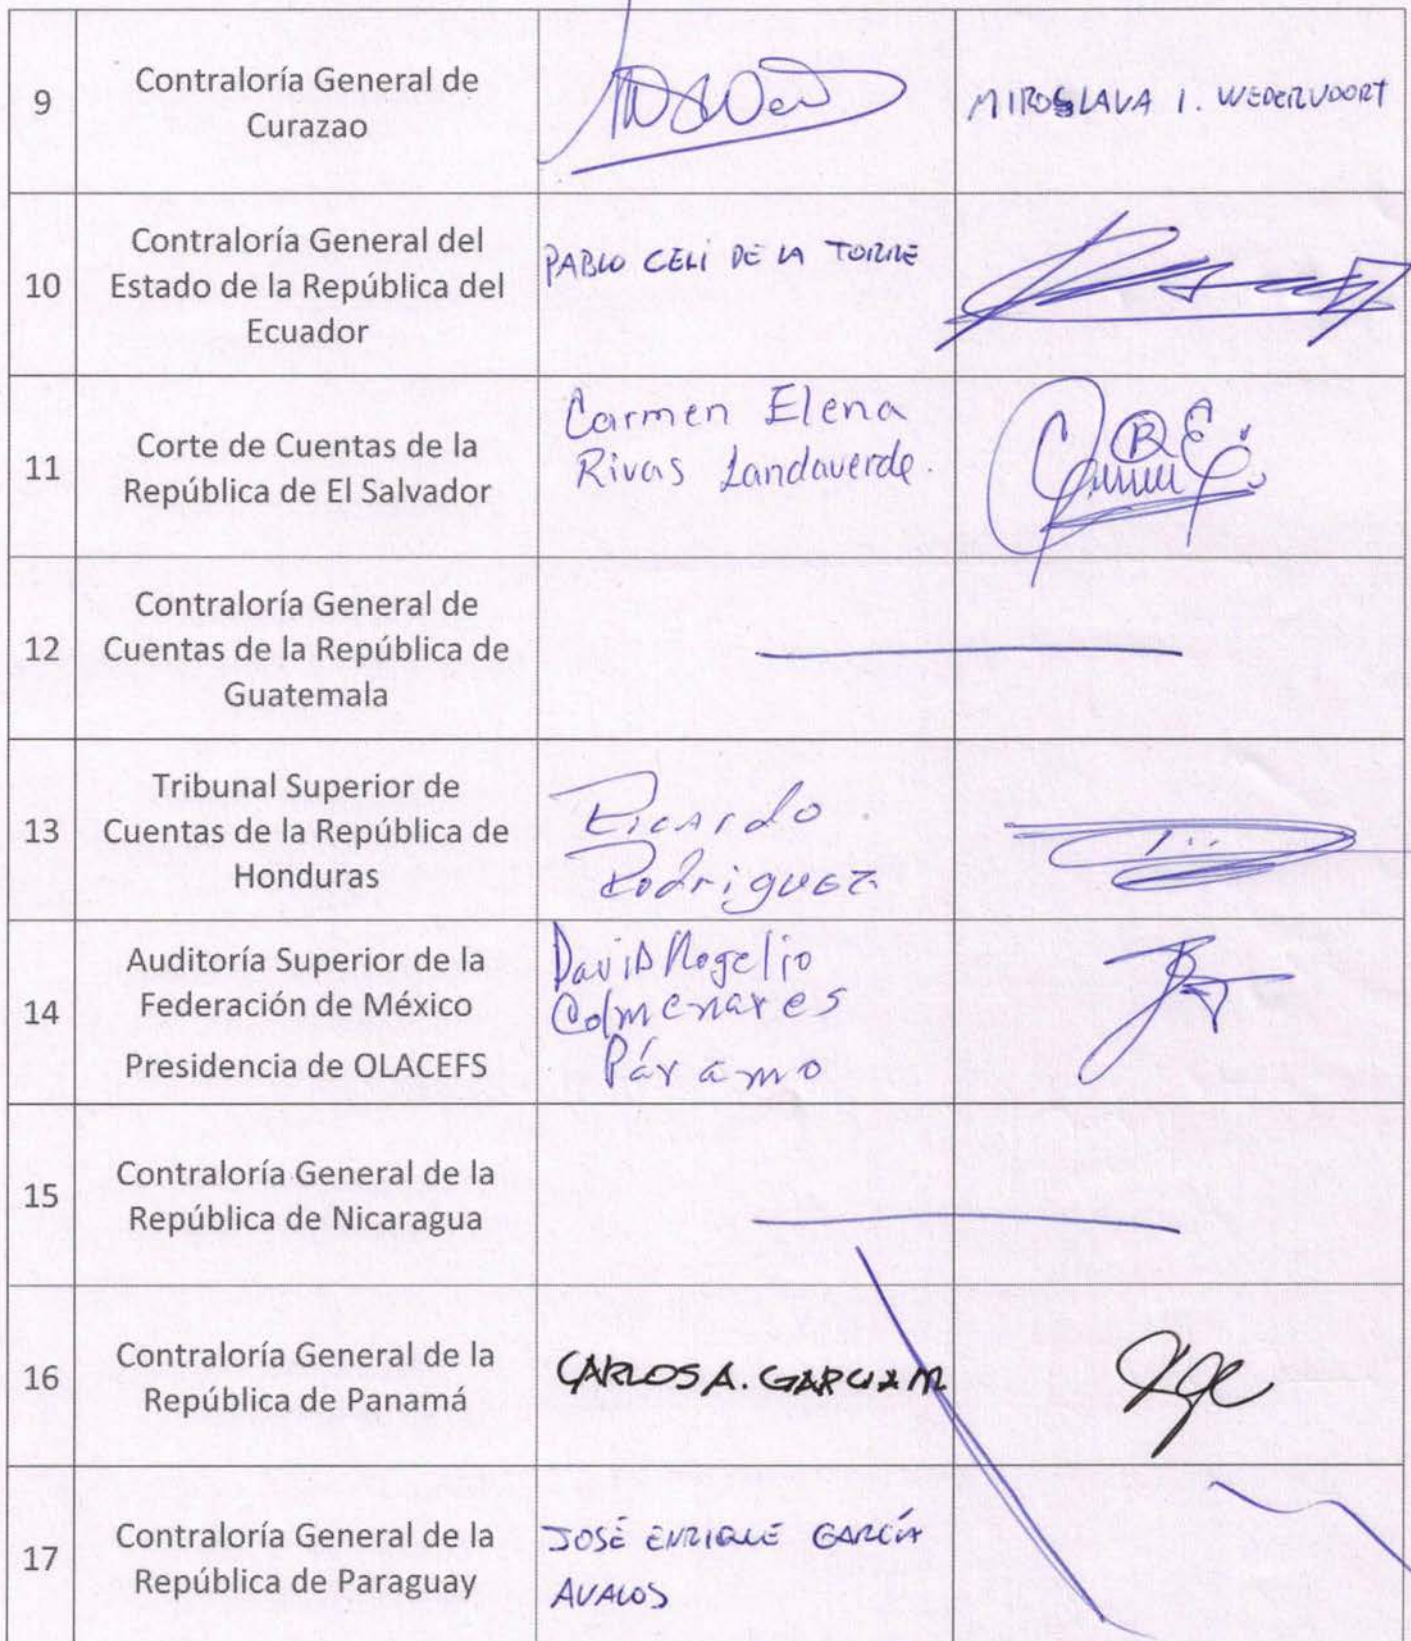 9
Contraloría General de
Curazao
MIROSLAVA I. WEDERVOORT
10
Contraloría General del
Estado de la República del
Ecuador
PABLO CELI DE LA TORRE
11
Corte de Cuentas de la
República de El Salvador
Carmen Elena
Rivas Landaverde.
12
Contraloría General de
Cuentas de la República de
Guatemala
13
Tribunal Superior de
Cuentas de la República de
Honduras
Ricardo
Rodriguez
14
Auditoría Superior de la
Federación de México
Presidencia de OLACEFS
David Rogelio
Colmenares
Páramo
15
Contraloría General de la
República de Nicaragua
16
Contraloría General de la
República de Panamá
CARLOS A. GARCIA M
17
Contraloría General de la
República de Paraguay
JOSÉ ENRIQUE GARCÍA
AVALOS